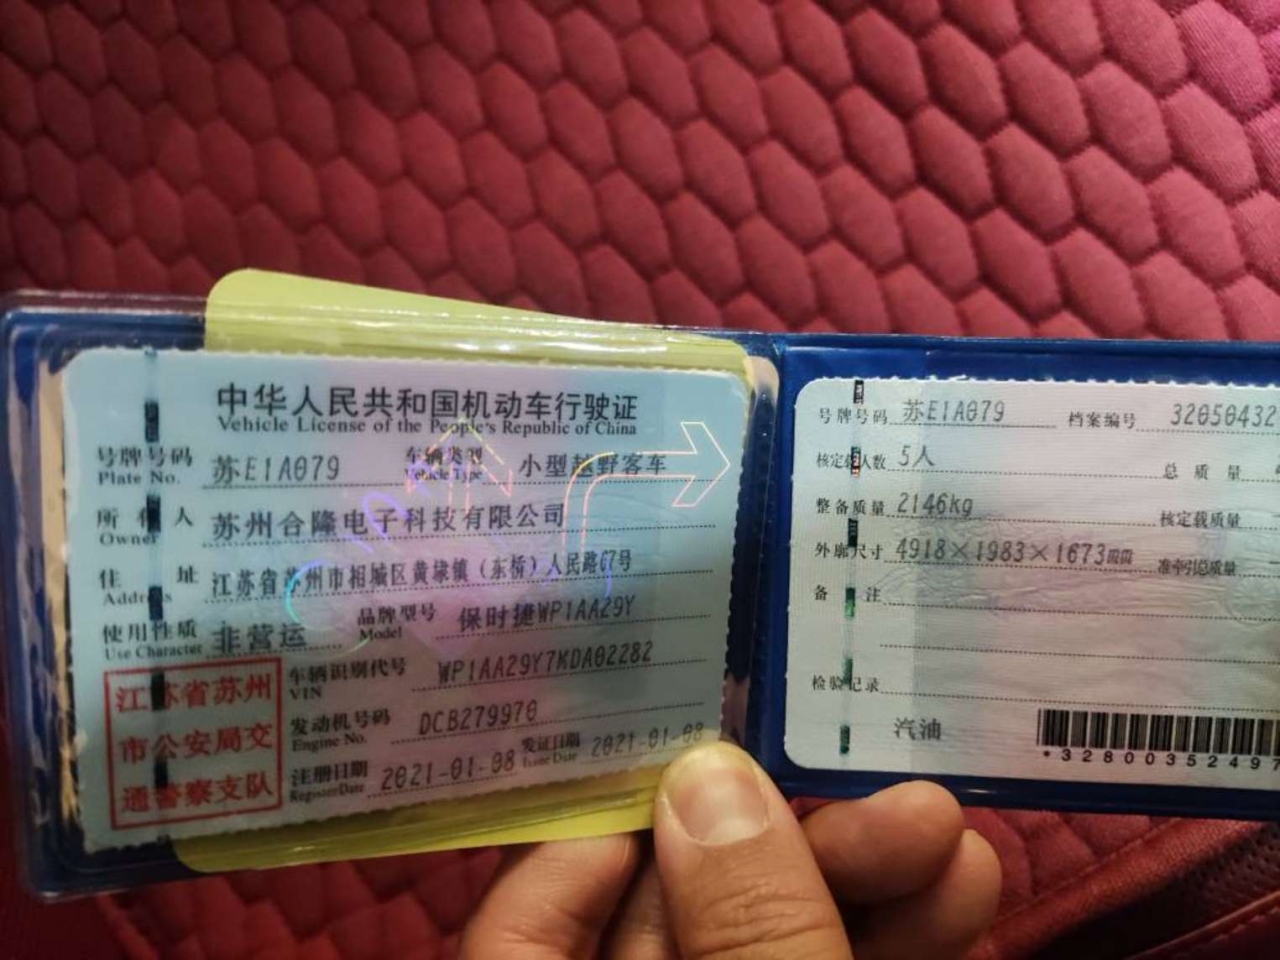 中华人民共和国机动车行驶证
Vehicle License of the People's Republic of China
号牌号码 苏E1A079 车辆类型 小型越野客车
Plate No. Vehicle Type
所有人 苏州合隆电子科技有限公司
Owner
住址 江苏省苏州市相城区黄埭镇（东桥）人民路67号
Address
使用性质 非营运 品牌型号 保时捷WP1AA29Y
Use Character Model
江苏省苏州市公安局交通警察支队
车辆识别代号 WP1AA29Y7KDA02282
VIN
发动机号码 DCB279970
Engine No.
注册日期 2021-01-08 发证日期 2021-01-08
Register Date Issue Date
号牌号码 苏E1A079 档案编号 32050432
核定载人数 5人 总质量
整备质量 2146kg 核定载质量
外廓尺寸 4918×1983×1673mm 准牵引总质量
备注
检验记录
汽油
*32800352497